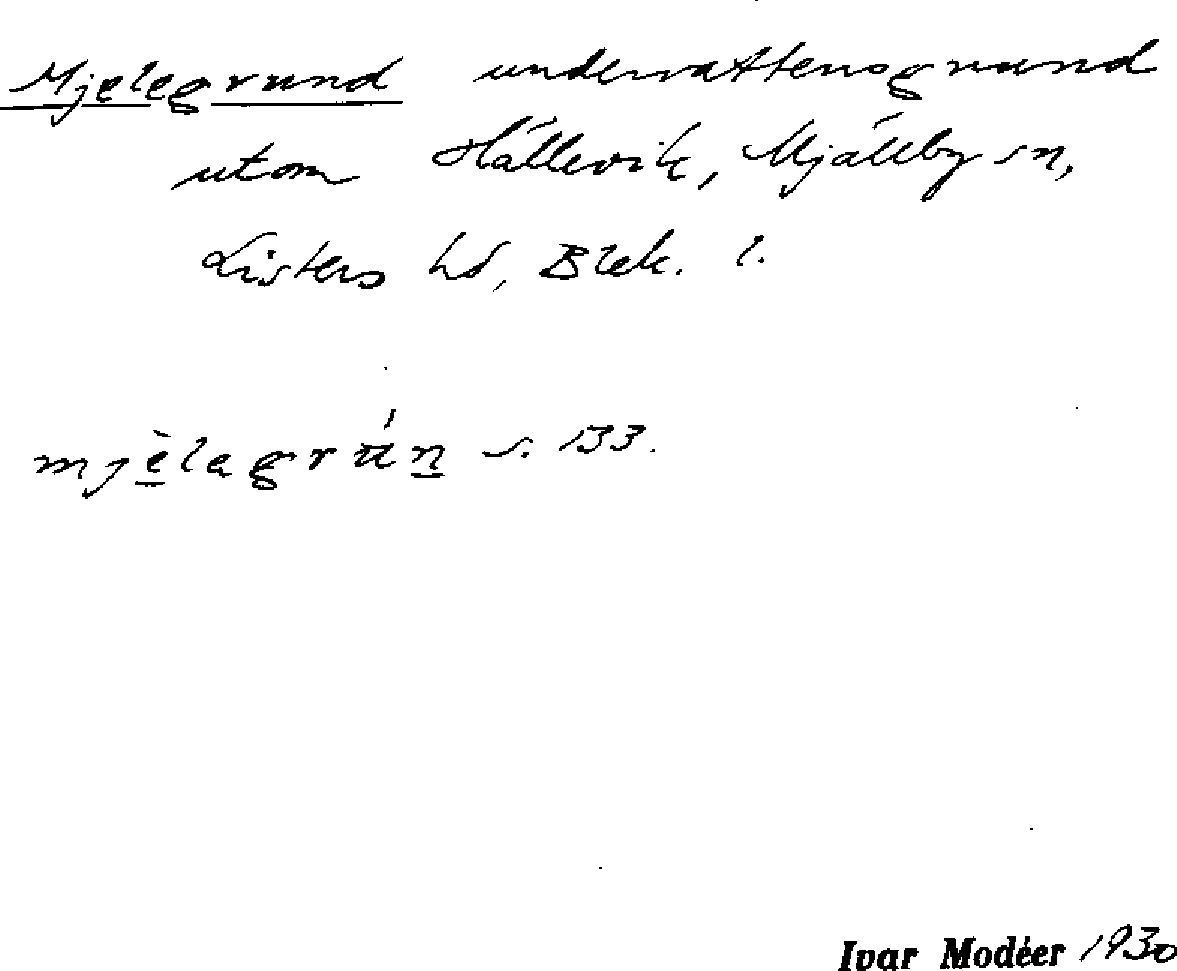 Mjelegrund undervattensgrund
utom Hällevik, Mjällby sn,
Listers hd, Blek. l.
mjèlagrún s. 133.
Ivar Modéer 1930